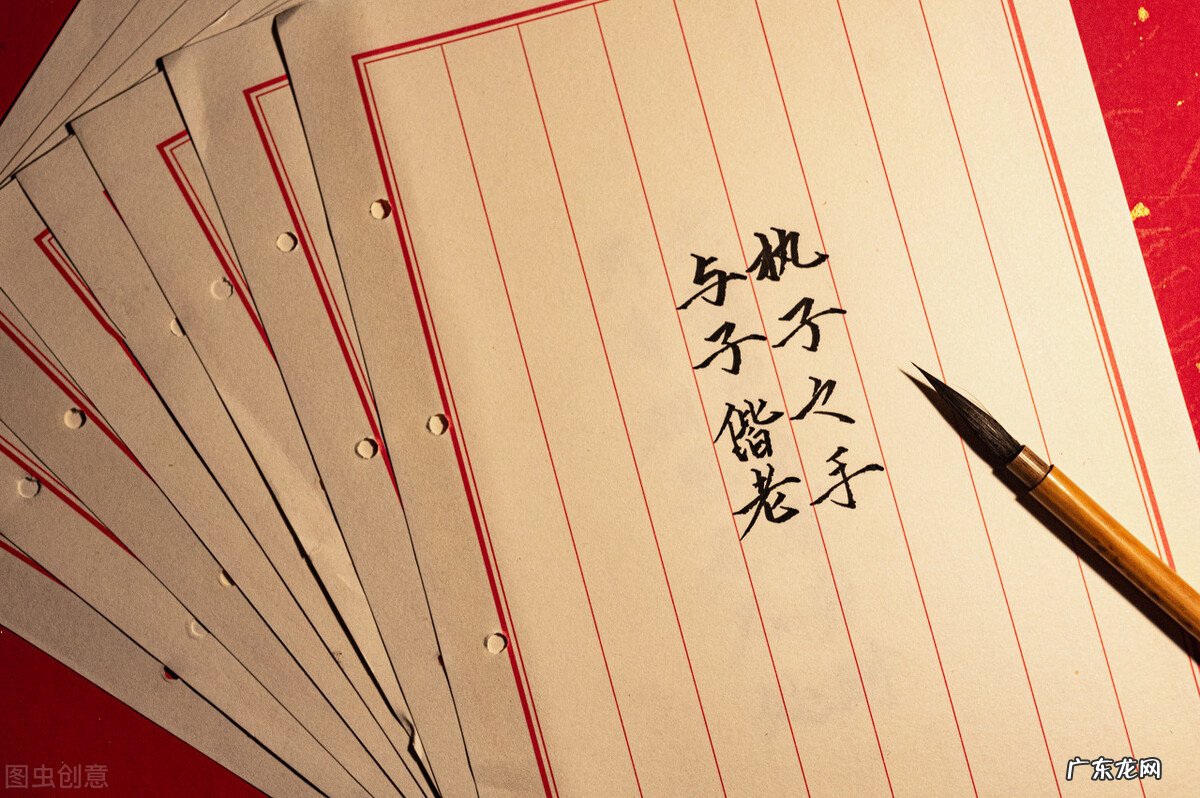 执子之手
与子偕老
图虫创意
广东龙网